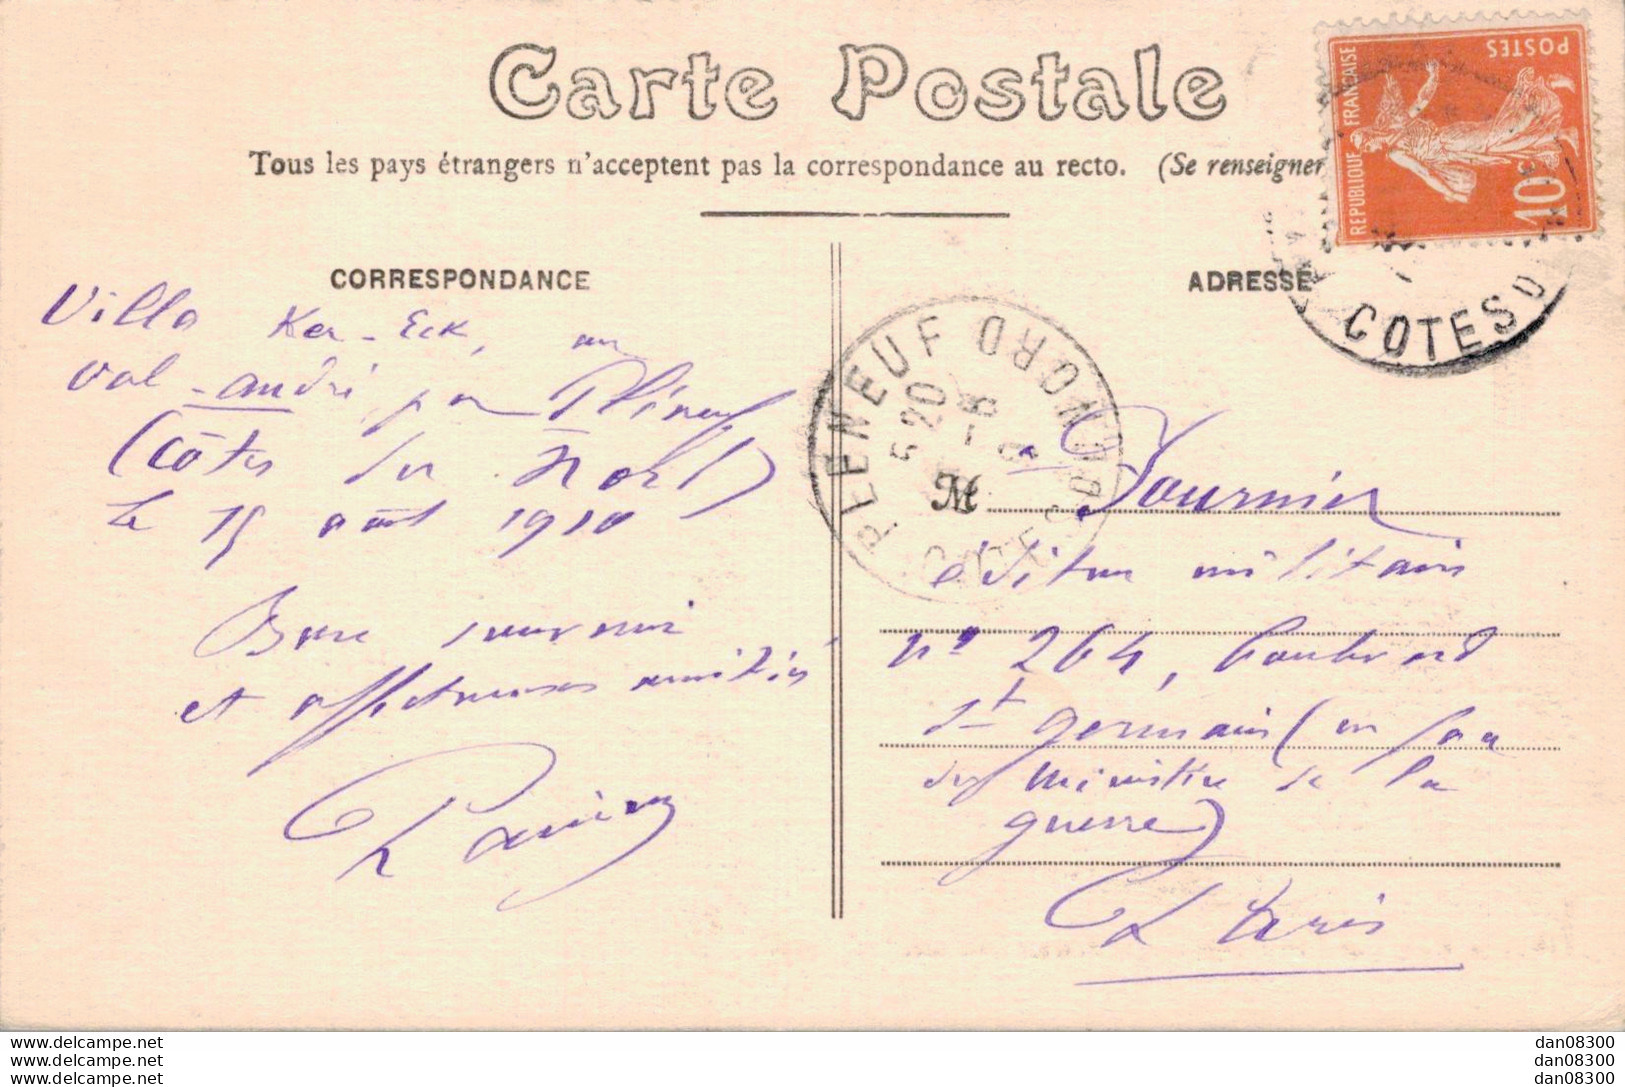 Carte Postale
Tous les pays étrangers n'acceptent pas la correspondance au recto. (Se renseigner
REPUBLIQUE FRANÇAISE
POSTES
10c
CORRESPONDANCE
Villa Ker-Eck, au
Val-andré, par Pléneuf
(Côtes du Nord)
le 15 août 1910
Bon souvenir
et affectueuses amitiés
PLENEUF
COTES DU NORD
5 20
ADRESSE
COTES D
M r Fournier
éditeur militaire
n° 264, boulevard
St germain (en face
du ministère de la
guerre)
Paris
dan08300
dan08300
dan08300